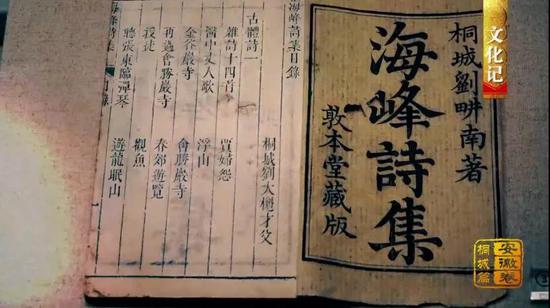 文化记
桐城劉畊南著
海峰詩集
敦本堂藏版
海峰詩集目錄
桐城劉大櫆才父
古體詩一
雜詩十四首 賈婦怨
丈人歌 浮山
金谷巖寺 會勝巖寺
再過會勝巖寺 春郊遊覽
授徒 觀魚
聽張東臨彈琴 遊龍眠山
海峰詩集 目錄
安徽卷
桐城篇